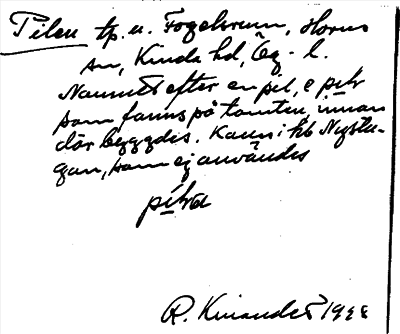 Pilen tp. u. Fogelsrum, Horns
sn, Kinda hd, Ög. l.
Namnet efter en pil, e pílr
som fanns på tomten, innan
där byggdes. Kann i kb Nystu-
gan, som ej användes
pílrə
R. Kinander 1928